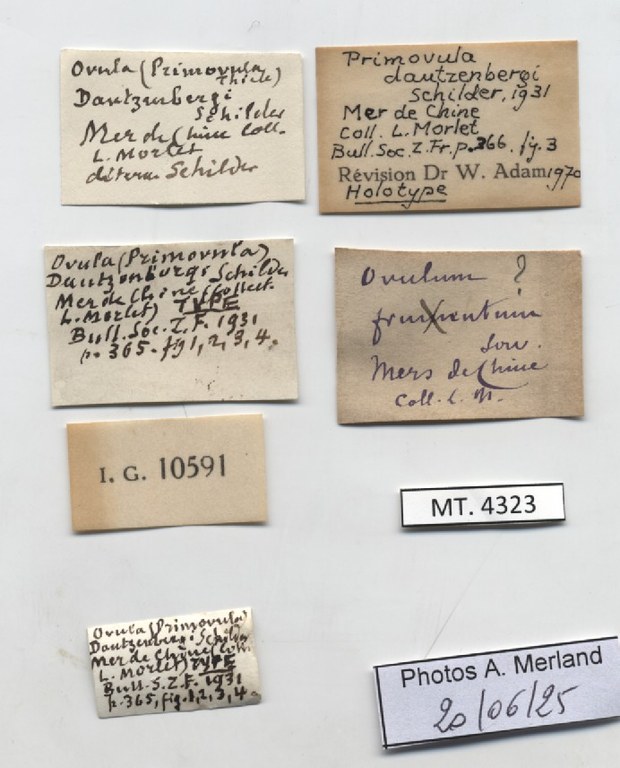 Ovula (Primovula
Thiele)
Dautzenbergi
Schilder
Mer de Chine Coll.
L. Morlet
déterm Schilder
Primovula
dautzenbergi
Schilder, 1931
Mer de Chine
Coll. L. Morlet
Bull. Soc. Z. Fr. p. 366. fig. 3
Révision Dr W. Adam 1970
Holotype
Ovula (Primovula)
Dautzenbergi Schilder
Mer de Chine (Collect.
L. Morlet) TYPE
Bull. Soc. Z. F. 1931
p. 365 - fig 1, 2, 3, 4.
Ovulum ?
frumentum
Sow.
Mers de Chine
Coll. L. M.
I. G. 10591
MT. 4323
Ovula (Primovula)
Dautzenbergi Schilder
Mer de Chine (Coll.
L. Morlet) TYPE
Bull. S. Z. F. 1931
p. 365, fig. 1, 2, 3, 4.
Photos A. Merland
20/06/25